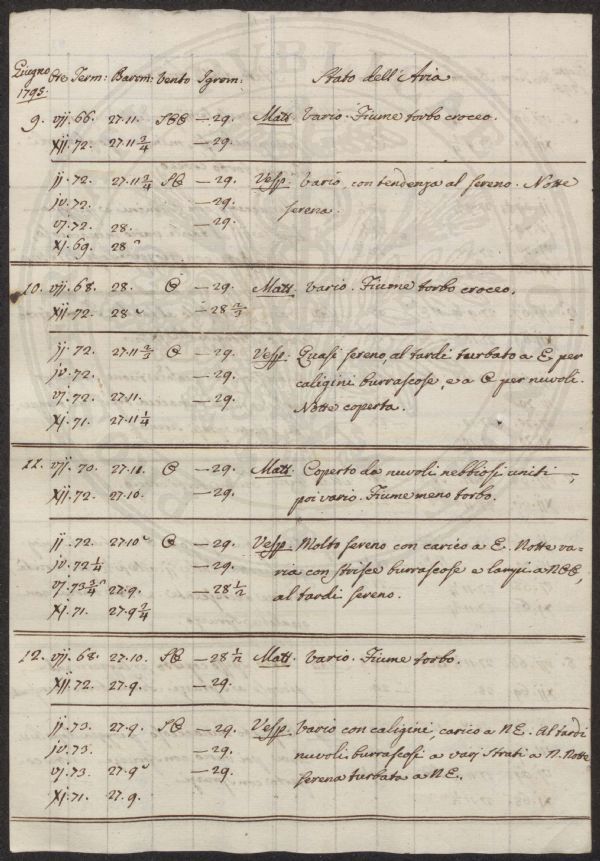 Giugno 1795. Ore Term: Barom: Vento Igrom: Stato dell'Aria
9. vij. 66. 27.11. — 29. Matt. Vario. Fiume torbo croceo.
xij. 72. 27.11 — 29.
ij. 72. 27.11 — 29. Vesp. Vario, con tendenza al sereno. Notte
iv. 72. — 29. serena.
vj. 72. 28. — 29.
xj. 69. 28
10. vij. 68. 28. — 29. Matt. Vario. Fiume torbo croceo.
xij. 72. 28 — 28
ij. 72. 27.11 — 29. Vesp. Quasi sereno, al tardi turbato a E per
iv. 72. — 29. caligini burrascose, e a O per nuvoli.
vj. 72. 27.11. — 29. Notte coperta.
xj. 71. 27.11 1/4
11. vij. 70. 27.11. — 29. Matt. Coperto da nuvoli nebbiosi uniti,
xij. 72. 27.10. — 29. poi vario. Fiume meno torbo.
ij. 72. 27.10 — 29. Vesp. Molto sereno con carico a E. Notte va-
iv. 72 1/4 — 29. ria con strisce burrascose e lampi a NEE,
vj. 73 27.9. — 28 1/2 al tardi sereno.
xj. 71. 27.9
12. vij. 68. 27.10. — 28 Matt. Vario. Fiume torbo.
xij. 72. 27.9. — 29.
ij. 73. 27.9. — 29. Vesp. Vario con caligini, carico a NE. Al tardi
iv. 73. — 29. nuvoli burrascosi a varj strati a N. Notte
vj. 73. 27.9 — 29. serena turbata a NE.
xj. 71. 27.9.